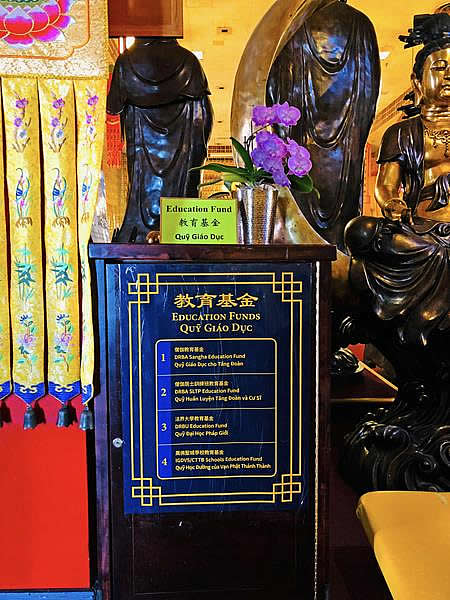 Education Fund
教育基金
Quỹ Giáo Dục
教育基金
EDUCATION FUNDS
QUỸ GIÁO DỤC
1
僧伽教育基金
DRBA Sangha Education Fund
Quỹ Giáo Dục cho Tăng Đoàn
2
僧伽居士訓練班教育基金
DRBA SLTP Education Fund
Quỹ Huấn Luyện Tăng Đoàn và Cư Sĩ
3
法界大學教育基金
DRBU Education Fund
Quỹ Đại Học Pháp Giới
4
萬佛聖城學校教育基金
IGDVS/CTTB Schools Education Fund
Quỹ Học Đường của Vạn Phật Thánh Thành